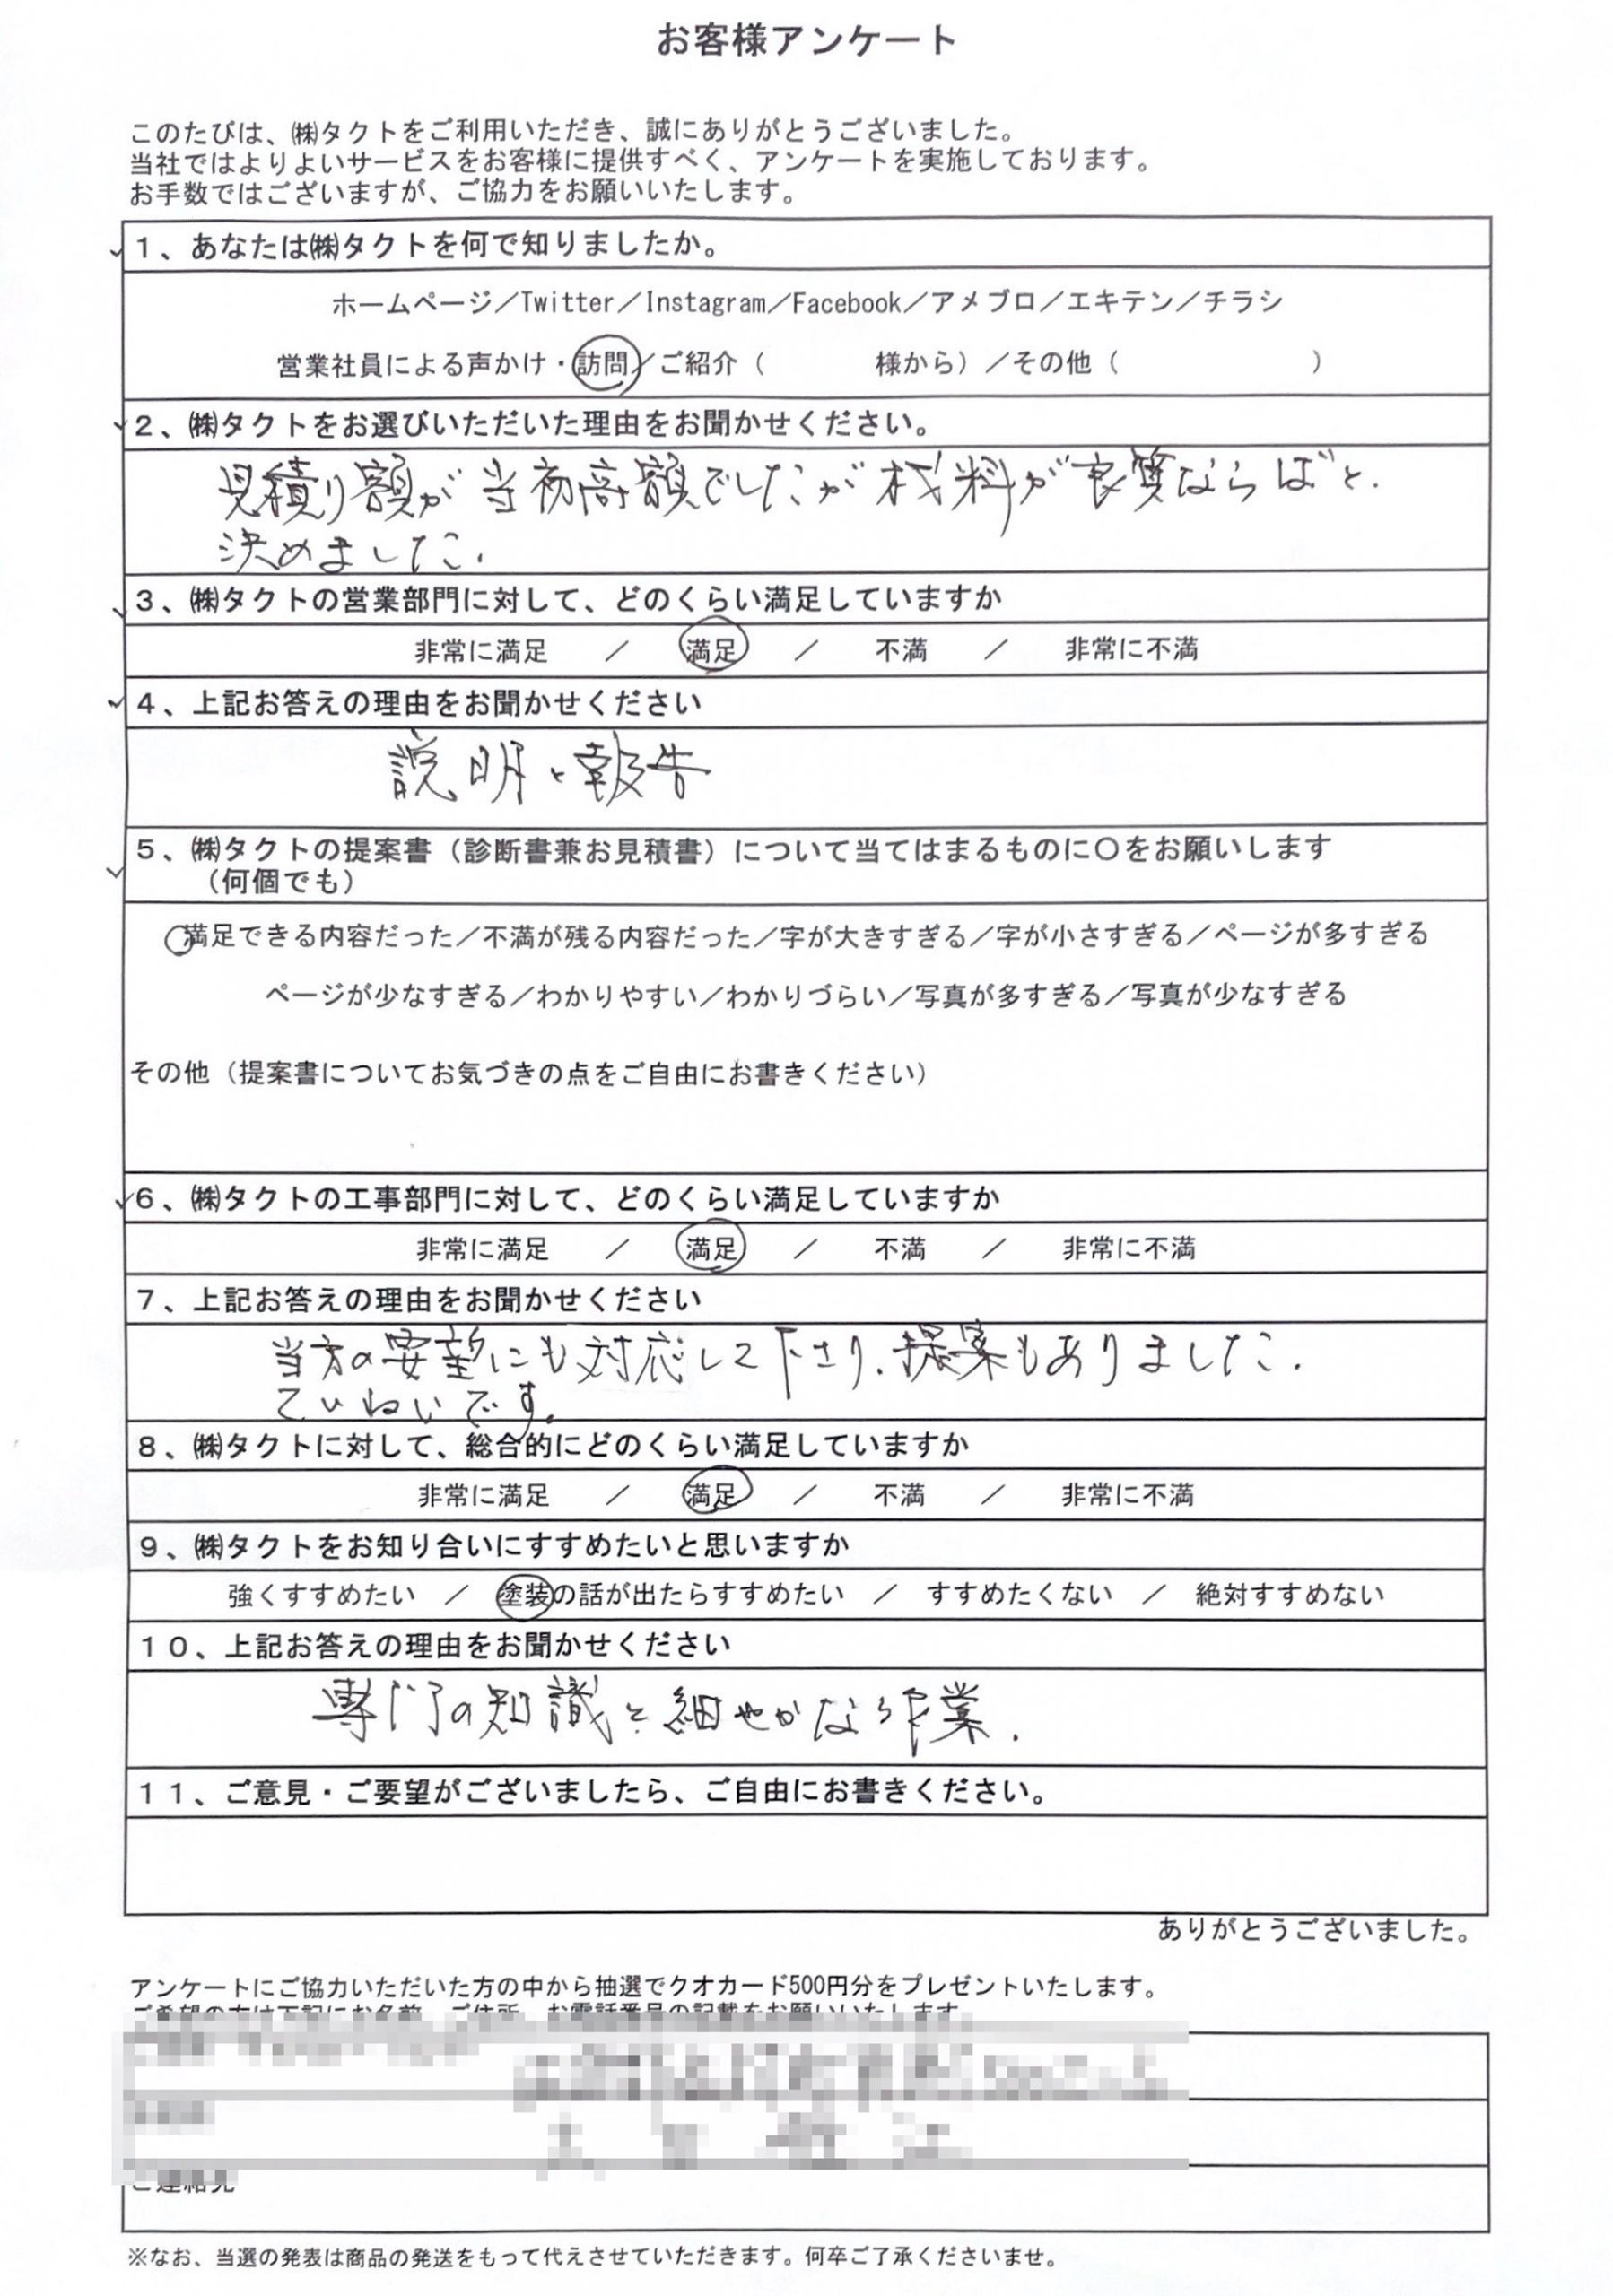 お客様アンケート
このたびは、㈱タクトをご利用いただき、誠にありがとうございました。
当社ではよりよいサービスをお客様に提供すべく、アンケートを実施しております。
お手数ではございますが、ご協力をお願いいたします。
1、あなたは㈱タクトを何で知りましたか。
ホームページ／Twitter／Instagram／Facebook／アメブロ／エキテン／チラシ
営業社員による声かけ・訪問／ご紹介（　　　　様から）／その他（　　　　　　　）
2、㈱タクトをお選びいただいた理由をお聞かせください。
見積り額が当初高額でしたが材料が良質ならばと.
決めました.
3、㈱タクトの営業部門に対して、どのくらい満足していますか
非常に満足　／　満足　／　不満　／　非常に不満
4、上記お答えの理由をお聞かせください
説明と報告
5、㈱タクトの提案書（診断書兼お見積書）について当てはまるものに〇をお願いします
（何個でも）
満足できる内容だった／不満が残る内容だった／字が大きすぎる／字が小さすぎる／ページが多すぎる
ページが少なすぎる／わかりやすい／わかりづらい／写真が多すぎる／写真が少なすぎる
その他（提案書についてお気づきの点をご自由にお書きください）
6、㈱タクトの工事部門に対して、どのくらい満足していますか
非常に満足　／　満足　／　不満　／　非常に不満
7、上記お答えの理由をお聞かせください
当方の要望にも対応して下さり、提案もありました.
ていねいです。
8、㈱タクトに対して、総合的にどのくらい満足していますか
非常に満足　／　満足　／　不満　／　非常に不満
9、㈱タクトをお知り合いにすすめたいと思いますか
強くすすめたい　／　塗装の話が出たらすすめたい　／　すすめたくない　／　絶対すすめない
10、上記お答えの理由をお聞かせください
専門の知識と細やかなる作業.
11、ご意見・ご要望がございましたら、ご自由にお書きください。
ありがとうございました。
アンケートにご協力いただいた方の中から抽選でクオカード500円分をプレゼントいたします。
ご希望の方は下記にお名前、ご住所、お電話番号の記載をお願いいたします
ご連絡先
※なお、当選の発表は商品の発送をもって代えさせていただきます。何卒ご了承くださいませ。